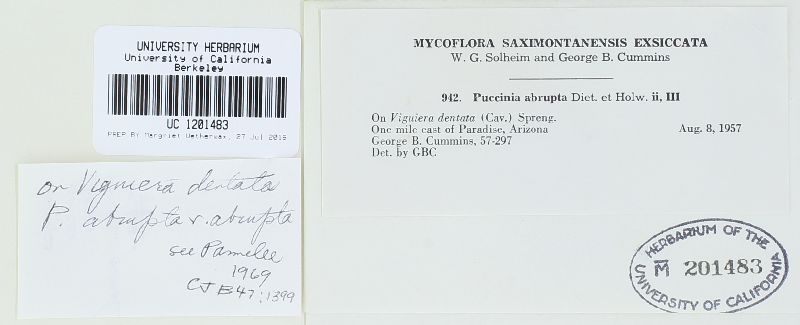 UNIVERSITY HERBARIUM
University of California
Berkeley
UC 1201483
PREP By Margriet Wetherwax, 27 Jul 2016
on Viguiera dentata
P. abrupta v. abrupta
see Parmelee
1969
CJB47:1399
MYCOFLORA SAXIMONTANENSIS EXSICCATA
W. G. Solheim and George B. Cummins
942. Puccinia abrupta Diet. et Holw. ii, III
On Viguiera dentata (Cav.) Spreng.
One mile east of Paradise, Arizona Aug. 8, 1957
George B. Cummins, 57-297
Det. by GBC
HERBARIUM OF THE
M 201483
UNIVERSITY OF CALIFORNIA